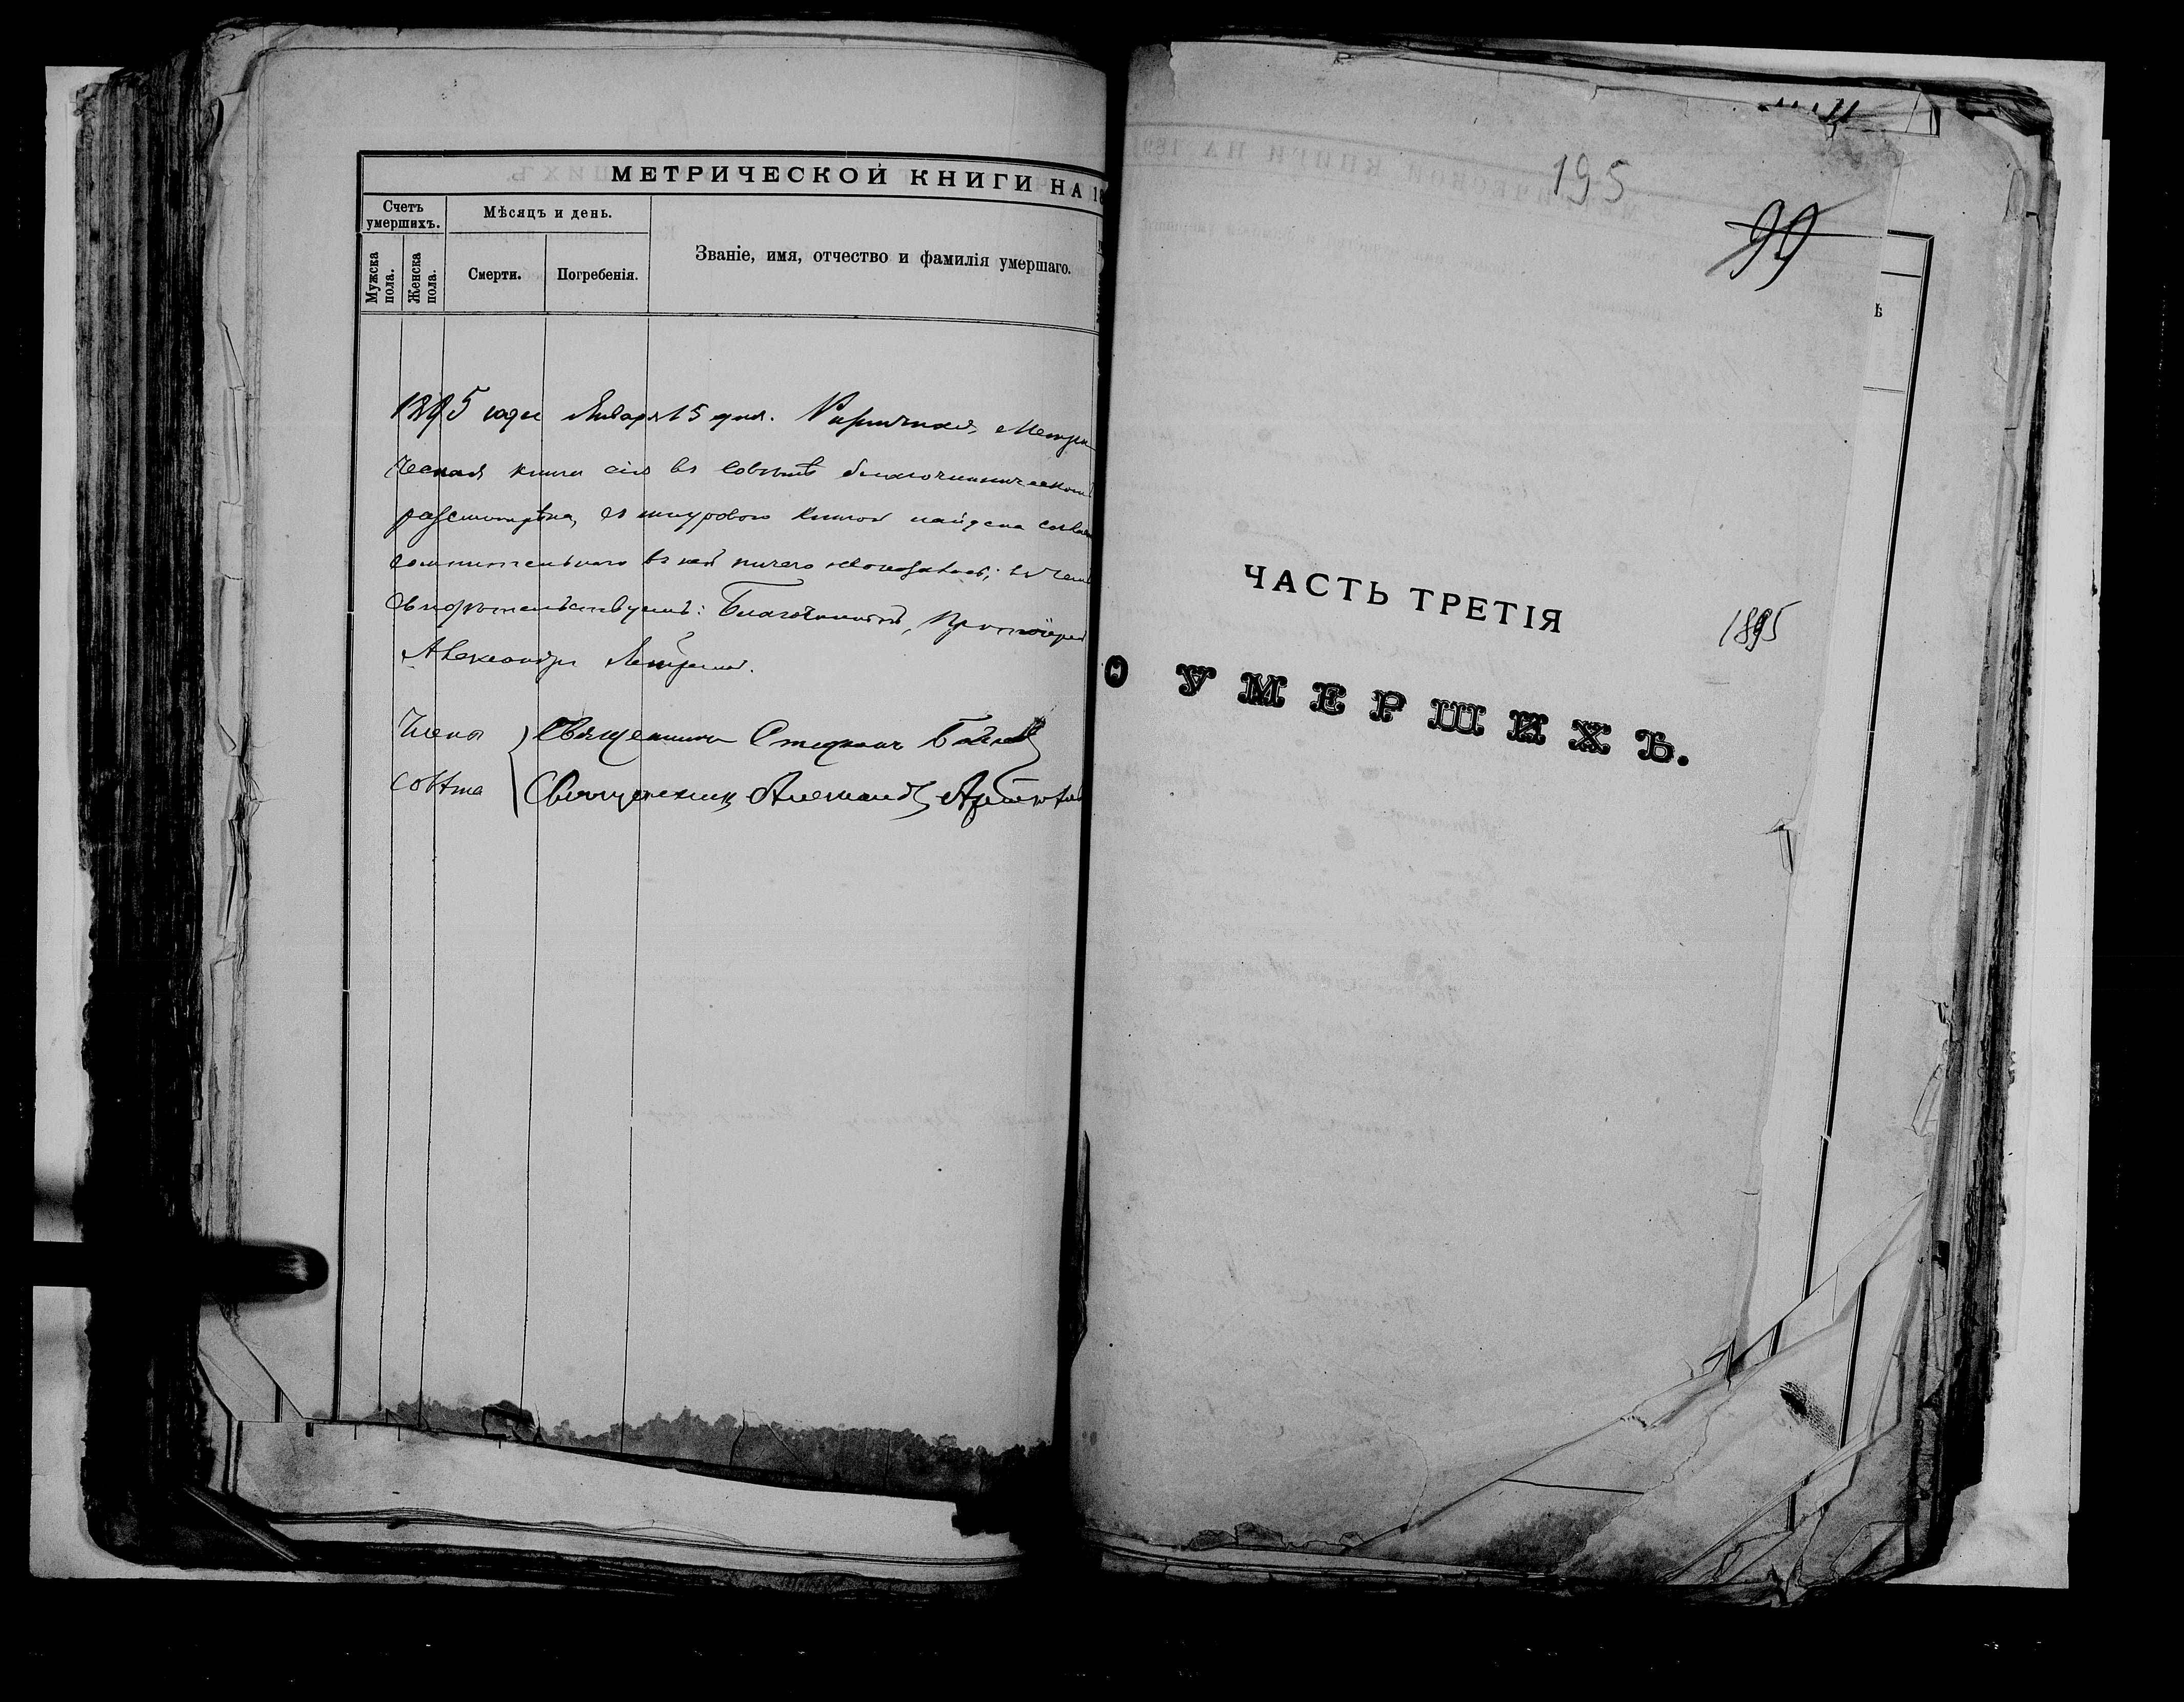 МЕТРИЧЕСКОЙ КНИГИ НА 18
Счетъ умершихъ.
Мѣсяцъ и день.
Званіе, имя, отчество и фамилія умершаго.
Мужска пола.
Женска пола.
Смерти.
Погребенія.
1895 года Января 15 дня. Метри
ческая книга сія въ Совѣтѣ благочинническомъ
разсмотрѣна, съ шнуровою книгой найдена
сомнительнаго въ ней ничего неоказалось; въ чемъ
свидѣтельствуемъ: Благочинный, Протоіерей
Александръ
Члены
Совѣта
Священникъ Стефанъ
Священникъ Александръ
195
99
ЧАСТЬ ТРЕТІЯ
1895
О УМЕРШИХЪ.